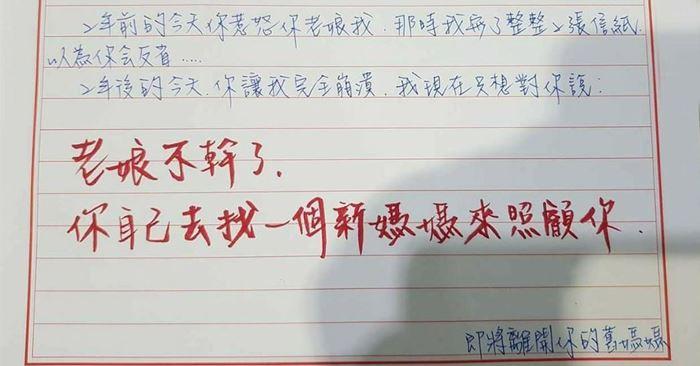 2年前的今天你惹怒你老娘我.那時我寫了整整2張信紙.
以為你会反省....
2年後的今天.你讓我完全崩潰.我現在只想對你說:
老娘不幹了.
你自己去找一個新媽媽來照顧你.
即將離開你的舊媽媽